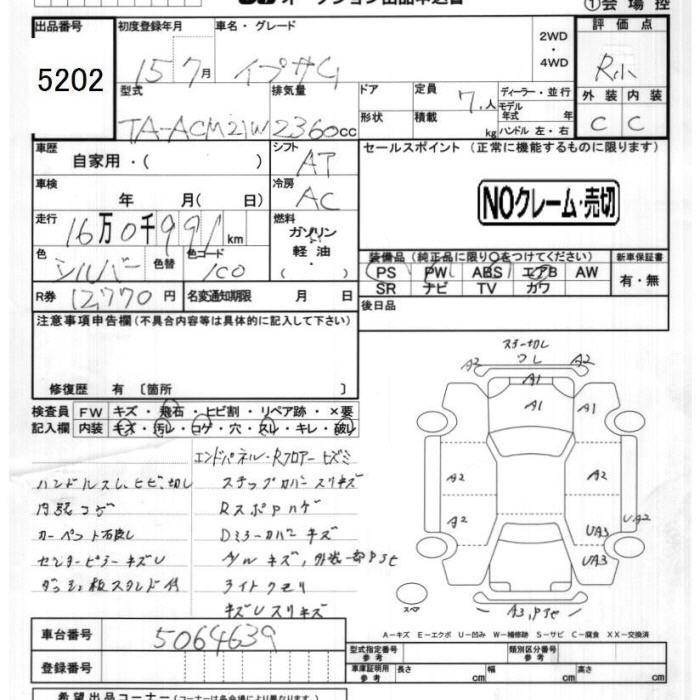 オークション出品申込書
①会場控
出品番号
5202
初度登録年月
15 7月
車名・グレード
イプサム
2WD
・
4WD
評価点
R小
外装 内装
C C
型式
TA-ACM21W
排気量
2360cc
ドア
形状
定員
7人
積載
kg
ディーラー・並行
モデル年式 年
ハンドル 左・右
車歴
自家用・( )
シフト
AT
セールスポイント (正常に機能するものに限ります)
NOクレーム・売切
車検
年 月( 日)
冷房
AC
走行
16万0千991km
燃料
ガソリン
軽油
・( )
色
シルバー
色替
色コード
1C0
装備品(純正品に限り○をつけてください)
PS PW ABS エアB AW
SR ナビ TV カワ
新車保証書
有・無
R券 12,770円
名変通知期限 月 日
後日品
注意事項申告欄(不具合内容等は具体的に記入して下さい)
修復歴 有〔箇所 〕
検査員記入欄
FW キズ・飛石・ヒビ割・リペア跡・×要
内装 キズ・汚レ・コゲ・穴・スレ・キレ・破レ
エンドパネル・Rフロアーヒズミ
ハンドルスレ、ヒビ、切レ
ステップカバースリキズ
内張コゲ
RスポPハゲ
カーペット汚破レ
Dミラーカバーキズ
センターピラーキズU
アルミキズ、外装一部Pjt
ダッシュ板スタンド付
ライトクモリ
キズUスリキズ
ステー切レ
ワレ
A2 A1 A2
A1
A2 A2
A2 U.A2
UA3
UA3
スペア
A3,Pjc
A－キズ E－エクボ U－凹み W－補修跡 S－サビ C－腐食 XX－交換済
車台番号
5064639
登録番号
型式指定番号
参考
類別区分番号
参考
車庫証明用
参考
長さ cm
幅 cm
高さ cm
希望出品コーナー(コーナーは各会場により異なります)